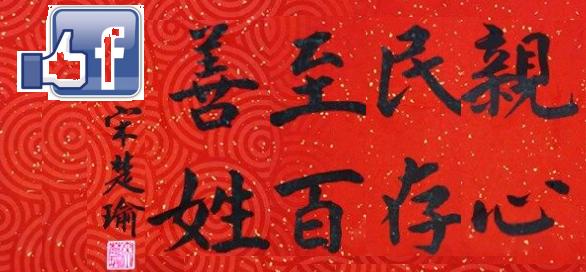 親民至善
心存百姓
宋楚瑜
f